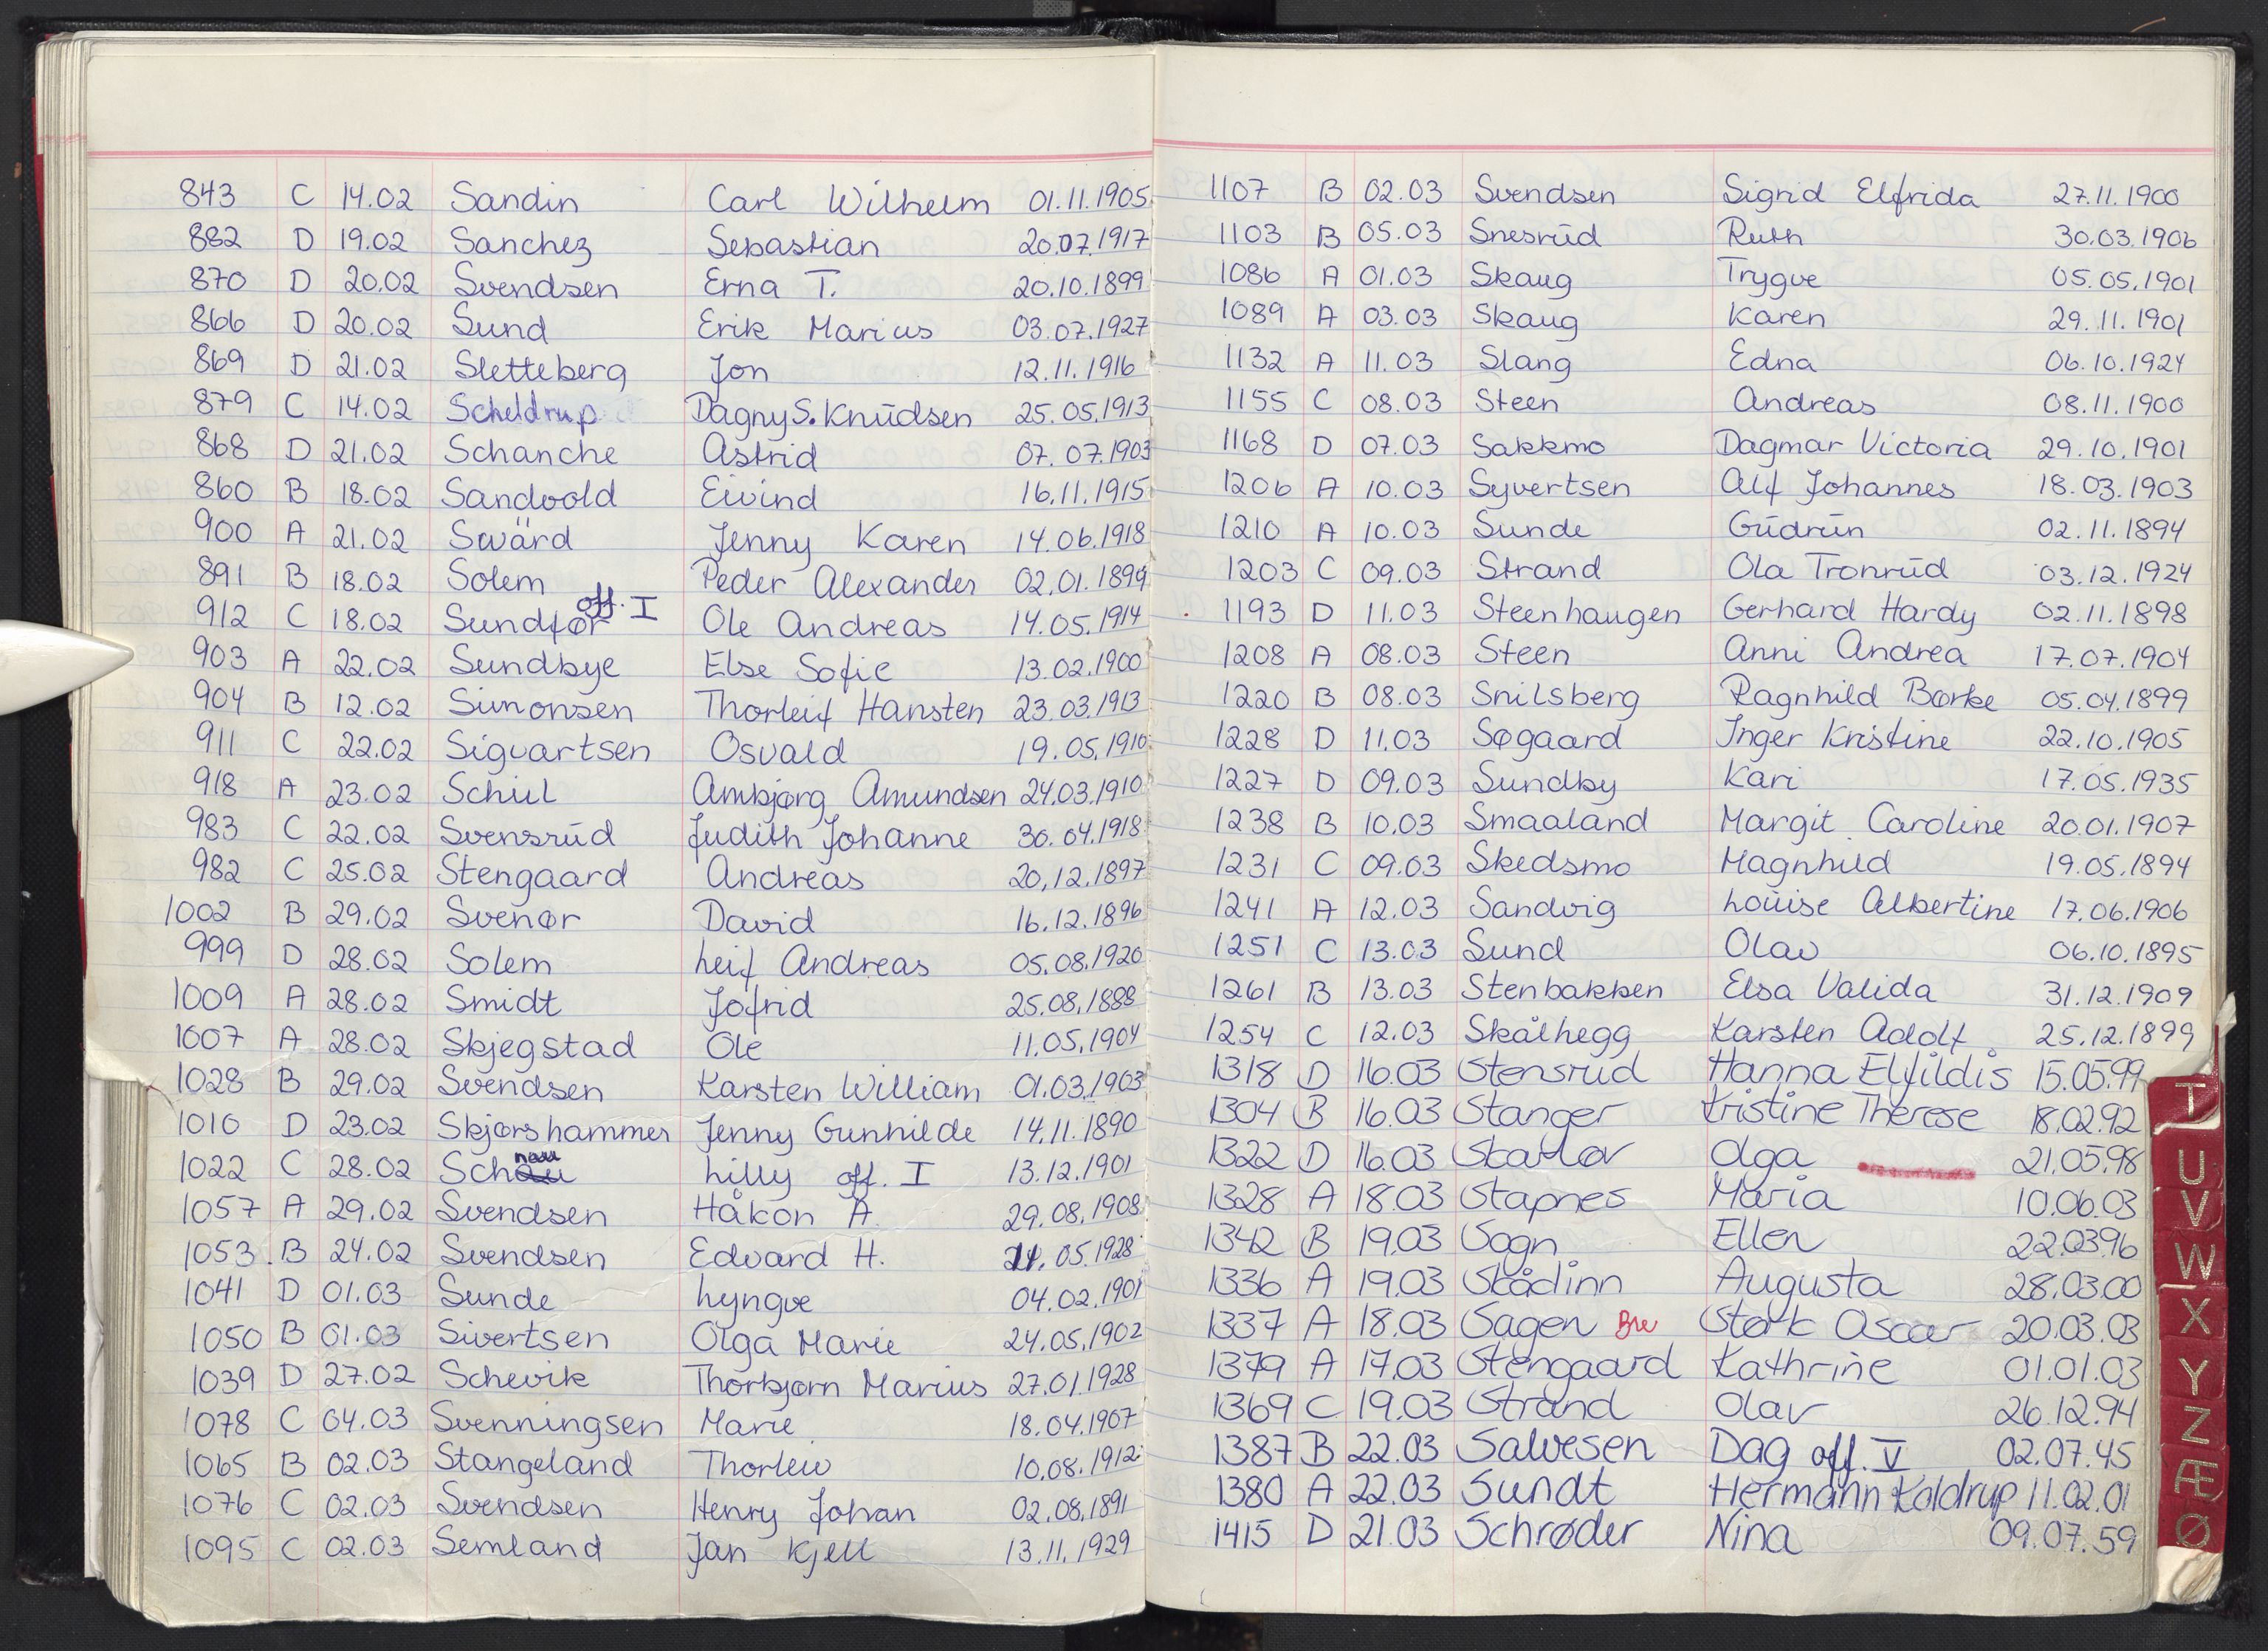 843 C 14.02 Sandin Carl Wilhelm 01.11.1905
882 D 19.02 Sanchez Sebastian 20.07.1917
870 D 20.02 Svendsen Erna T. 20.10.1899
866 D 20.02 Sund Erik Marius 03.07.1927
869 D 21.02 Sletteberg Jon 12.11.1916
879 C 14.02 Scheldrup Dagny S. Knudsen 25.05.1913
868 D 21.02 Schanche Astrid 07.07.1903
860 B 18.02 Sandvold Eivind 16.11.1915
900 A 21.02 Swärd Jenny Karen 14.06.1918
891 B 18.02 Solem Peder Alexander 02.01.1899
off. I
912 C 18.02 Sundfør Ole Andreas 14.05.1914
903 A 22.02 Sundbye Else Sofie 13.02.1900
904 B 12.02 Simonsen Thorleif Hansten 23.03.1913
911 C 22.02 Sigvartsen Osvald 19.05.1910
918 A 23.02 Schul Ambjørg Amundsen 24.03.1910
983 C 22.02 Svensrud Judith Johanne 30.04.1918
982 C 25.02 Stengaard Andreas 20.12.1897
1002 B 29.02 Svenør David 16.12.1896
999 D 28.02 Solem Leif Andreas 05.08.1920
1009 A 28.02 Smidt Jofrid 25.08.1888
1007 A 28.02 Skjegstad Ole 11.05.1904
1028 B 29.02 Svendsen Karsten William 01.03.1903
1010 D 23.02 Skjørshammer Jenny Gunhilde 14.11.1890
1022 C 28.02 Lilly off. I 13.12.1901
1057 A 29.02 Svendsen Håkon A. 29.08.1908
1053 B 24.02 Svendsen Edvard H. 05.1928
1041 D 01.03 Sunde Lyngve 04.02.1901
1050 B 01.03 Sivertsen Olga Marie 24.05.1902
1039 D 27.02 Schevik Thorbjørn Marius 27.01.1928
1078 C 04.03 Svenningsen Marie 18.04.1907
1065 B 02.03 Stangeland Thorleiv 10.08.1912
1076 C 02.03 Svendsen Henry Johan 02.08.1891
1095 C 02.03 Semland Jan Kjell 13.11.1929
1107 B 02.03 Svendsen Sigrid Elfrida 27.11.1900
1103 B 05.03 Snesrud Ruth 30.03.1906
1086 A 01.03 Skaug Trygve 05.05.1901
1089 A 03.03 Skaug Karen 29.11.1901
1132 A 11.03 Slang Edna 06.10.1924
1155 C 08.03 Steen Andreas 08.11.1900
1168 D 07.03 Sakkmo Dagmar Victoria 29.10.1901
1206 A 10.03 Syvertsen Alf Johannes 18.03.1903
1210 A 10.03 Sunde Gudrun 02.11.1894
1203 C 09.03 Strand Ola Tronrud 03.12.1924
1193 D 11.03 Steenhaugen Gerhard Hardy 02.11.1898
1208 A 08.03 Steen Anni Andrea 17.07.1904
1220 B 08.03 Snilsberg Ragnhild Børke 05.04.1899
1228 D 11.03 Søgaard Inger Kristine 22.10.1905
1227 D 09.03 Sundby Kari 17.05.1935
1238 B 10.03 Smaaland Margit Caroline 20.01.1907
1231 C 09.03 Skedsmo Magnhild 19.05.1894
1241 A 12.03 Sandvig Louise Albertine 17.06.1906
1251 C 13.03 Sund Olav 06.10.1895
1261 B 13.03 Stenbakken Elsa Valida 31.12.1909
1254 C 12.03 Skålhegg Karsten Adolf 25.12.1899
1318 D 16.03 Stensrud Hanna Elfildis 15.05.99
1304 B 16.03 Stanger Kristine Therese 18.02.92
1322 D 16.03 Olga 21.05.98
1328 A 18.03 Stapnes Maria 10.06.03
1342 B 19.03 Sogn Ellen 22.03.96
1336 A 19.03 Stådinn Augusta 28.03.00
1337 A 18.03 Sagen Størk Oscar 20.03.03
1379 A 17.03 Stengaard Kathrine 01.01.03
1369 C 19.03 Strand Olav 26.12.94
1387 B 22.03 Salvesen Dag off. V 02.07.45
1380 A 22.03 Sundt Hermann Koldrup 11.02.01
1415 D 21.03 Schrøder Nina 09.07.59
T
U
V
W
X
Y
Z
Æ
Ø